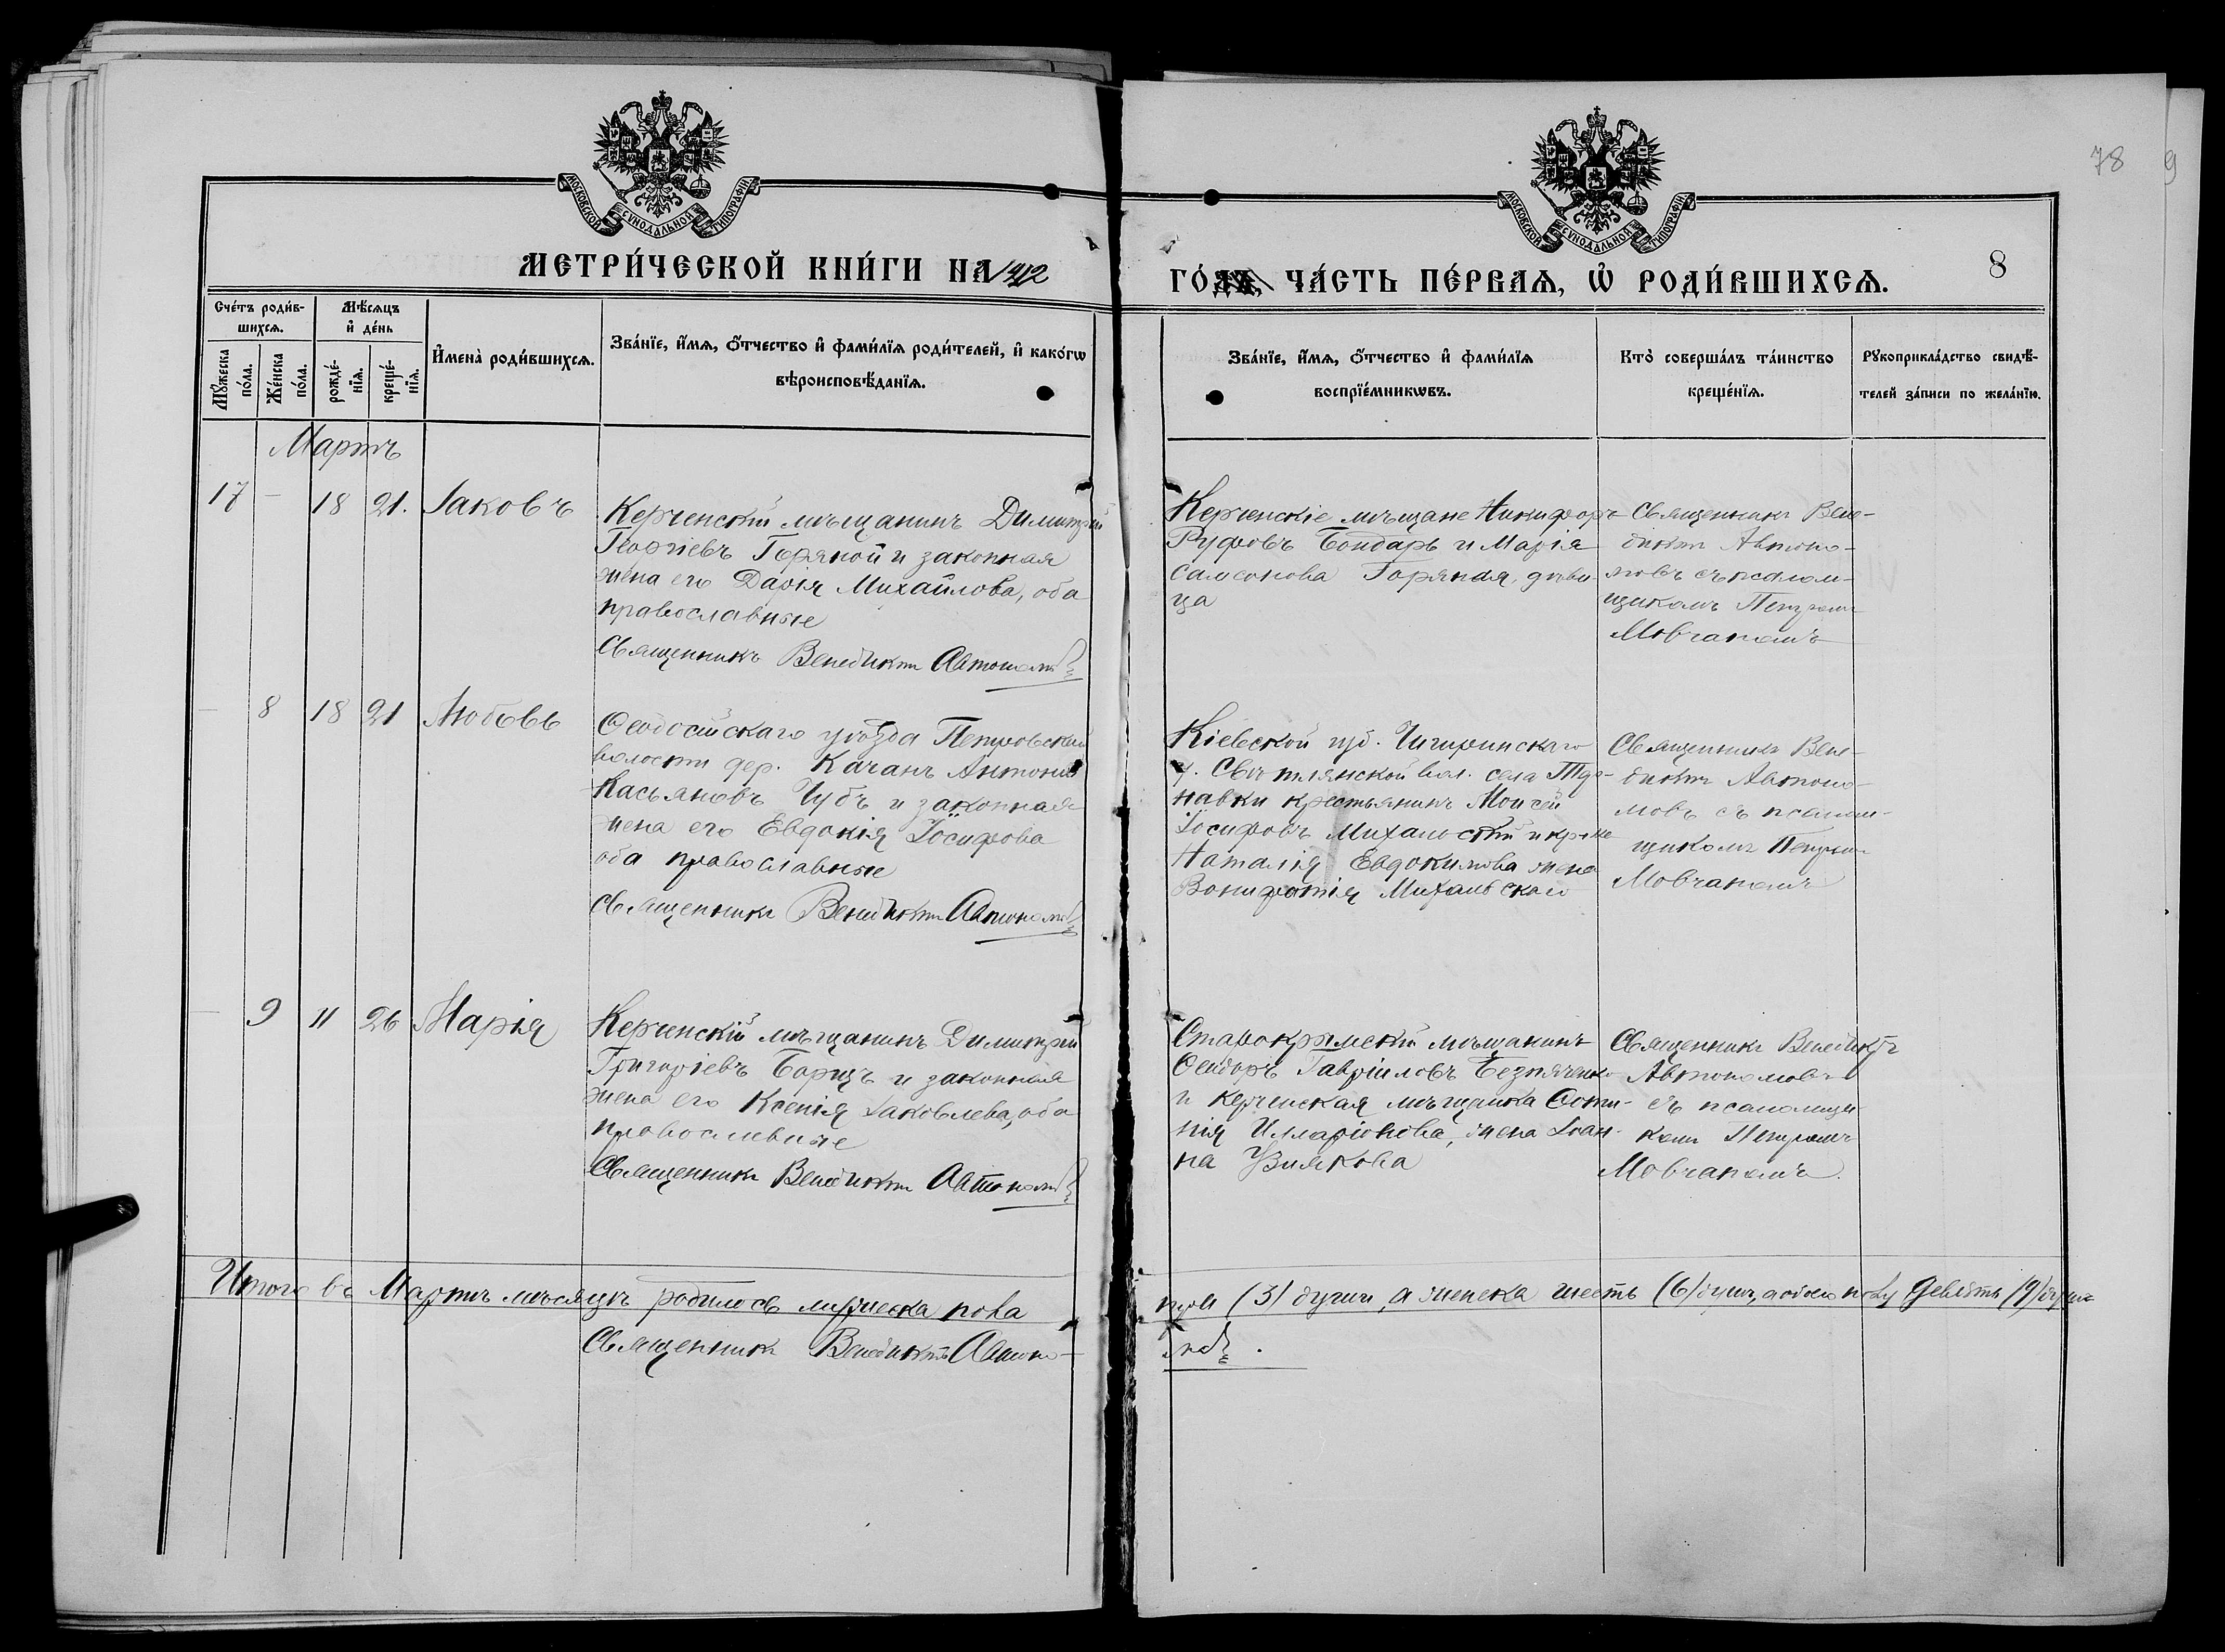 МОСКОВСКОЙ СѴНОДАЛЬНОЙ ТИПОГРАФІИ.
МОСКОВСКОЙ СѴНОДАЛЬНОЙ ТИПОГРАФІИ.
78 9
МЕТРИ́ЧЕСКОЙ КНИ́ГИ НА 1912 ГО́ДЪ, ЧА́СТЬ ПЕ́РВАѦ, Ѡ҆ РОДИ́ВШИХСѦ.
8
Сче́тъ роди́в-
шихсѧ.
Мꙋ́жеска по́ла.
Же́нска по́ла.
Мѣ́сѧцъ
и҆ де́нь
рожде́-
нїѧ.
креще́-
нїѧ.
И҆мена̀ роди́вшихсѧ.
Зва́нїе, и҆́мѧ, ѻ҆́тчество и҆ фами́лїѧ роди́телей, и҆ како́гѡ
вѣроисповѣ́данїѧ.
Зва́нїе, и҆́мѧ, ѻ҆́тчество и҆ фами́лїѧ
воспрїе́мникѡвъ.
Кто̀ соверша́лъ та́инство
креще́нїѧ.
Рꙋкоприкла́дство свидѣ́-
телей за́писи по жела́нїю.
Мартъ
17 - 18 21. Іаковъ
Керченскій мѣщанинъ Димитрій
Георгіевъ Горяной и законная
жена его Дарія Михайлова, оба
православные
Священникъ Венедиктъ Автономовъ
Керченскіе мѣщане Никифоръ
Руфовъ Бондарь и Марія
Самсонова Горяная, дѣви-
ца
Священникъ Вене-
диктъ Автоно-
мовъ съ псалом-
щикомъ Петромъ
Мовчаномъ
- 8 18 21 Любовь
Ѳеодосійскаго уѣзда Петровской
волости дер. Качанъ Антоній
Касьяновъ Чубъ и законная
жена его Евдокія Іосифова
оба православные
Священникъ Венедиктъ Автономовъ
Кіевской губ. Чигиринскаго
у. вол. села
навки крестьянинъ Моисей
Іосифовъ Михальскій и кр-ка
Наталія Евдокимова жена
Вонифатія Михальскаго
Священникъ Вене-
диктъ Автоно-
мовъ съ псалом-
щикомъ Петромъ
Мовчаномъ
- 9 11 26 Марія
Керченскій мѣщанинъ Димитрій
Григоріевъ Борщъ и законная
жена его Ксенія Іаковлева, оба
православные
Священникъ Венедиктъ Автономовъ
Старокрымскій мѣщанинъ
Ѳеодоръ Гавріиловъ
и керченская мѣщанка Фоти-
нія Илларіонова, жена Іоан-
на
Священникъ Венедиктъ
Автономовъ
съ псаломщи-
комъ Петромъ
Мовчаномъ.
Итого въ Мартѣ мѣсяцѣ родилось мужеска пола три (3) души, а женска шесть (6) душъ, а обоего полу девять (9) душъ
Священникъ Венедиктъ Автоно-
мовъ.